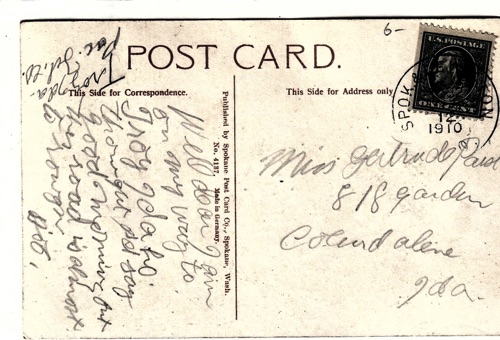 6-
POST CARD.
This Side for Correspondence.
This Side for Address only
U.S. POSTAGE
ONE CENT
SPOK
12
1910
Published by Spokane Post Card Co., Spokane, Wash.
No. 4137. Made in Germany.
Troy Ida
Well dear I am
on my way to
Troy Idaho.
thought I'd say
good morning but
the road is almost
to rough
Miss Gertrude
818 garden
Coeurd alene
Ida.